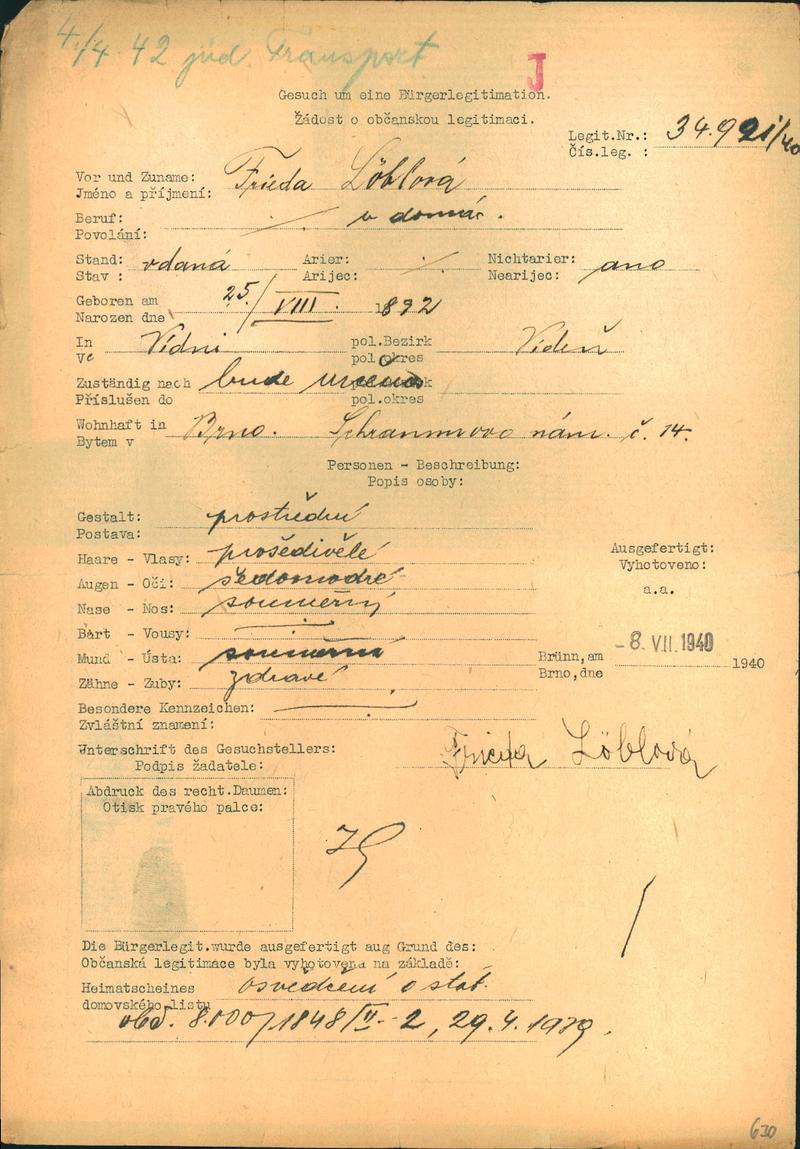 4/4 42 jüd. Transport
J
Gesuch um eine Bürgerlegitimation.
Žádost o občanskou legitimaci.
Legit.Nr.: 34.921/40
Čís.leg. :
Vor und Zuname: Frieda Löblová
Jméno a příjmení:
Beruf: v domác.
Povolání:
Stand: vdaná Arier: Nichtarier: ano
Stav : Arijec: Nearijec:
Geboren am 25/VIII. 1892
Narozen dne
In Vídni pol.Bezirk Vídeň
Ve pol.okres
Zuständig nach bude určeno
Příslušen do pol.okres
Wohnhaft in Brno. Schrammovo nám. č. 14.
Bytem v
Personen - Beschreibung:
Popis osoby:
Gestalt: prostřední
Postava:
Haare - Vlasy: prošedivělé
Augen - Oči: šedomodré
Nase - Nos: souměrný
Bart - Vousy:
Mund - Ústa: souměrná
Zähne - Zuby: zdravé
Besondere Kennzeichen:
Zvláštní znamení:
Ausgefertigt:
Vyhotoveno:
a.a.
Brünn,am -8. VII. 1940 1940
Brno,dne
Unterschrift des Gesuchstellers: Frieda Löblová
Podpis žadatele:
Abdruck des recht.Daumen:
Otisk pravého palce:
Die Bürgerlegit.wurde ausgefertigt aug Grund des:
Občanská legitimace byla vyhotovena na základě:
Heimatscheines osvědčení o stát.
domovského listu
obč. 8.000/1848/II-2, 29.4.1939.
630